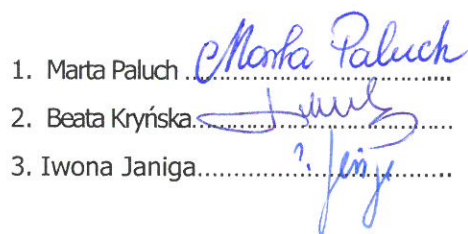 1. Marta Paluch ........ Marta Paluch
2. Beata Kryńska........
3. Iwona Janiga........